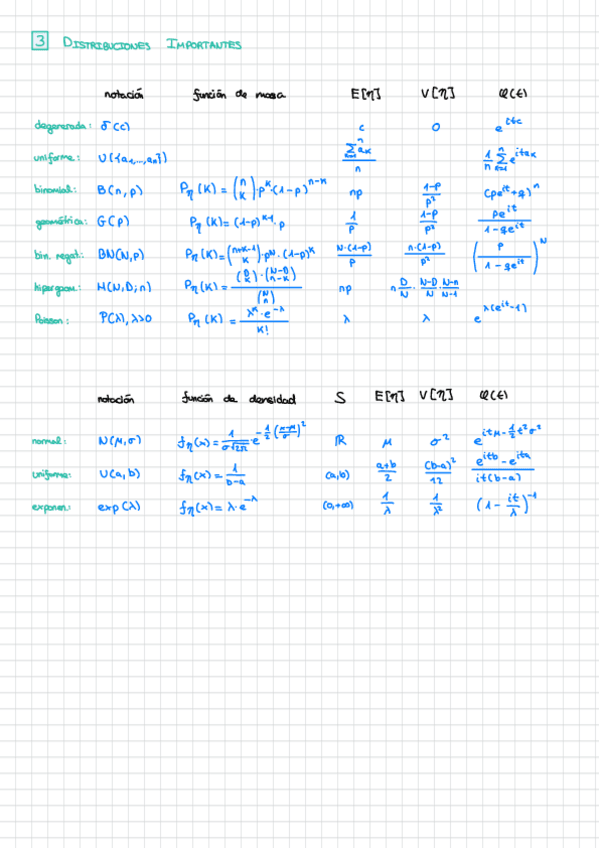 3 DISTRIBUCIONES IMPORTANTES
notación función de masa E[η] V[η] φ(t)
degenerada: δ(c) c 0 e^{itc}
uniforme: U({a₁,...,aₙ}) \frac{\sum_{k=1}^{n} a_k}{n} \frac{1}{n} \sum_{k=1}^{n} e^{ita_k}
binomial: B(n,p) P_η(K) = \binom{n}{K}·p^K·(1-p)^{n-K} np \frac{1-p}{p^2} (pe^{it}+q)^n
geométrica: G(p) P_η(K) = (1-p)^{K-1}·p \frac{1}{p} \frac{1-p}{p^2} \frac{pe^{it}}{1-qe^{it}}
bin. negat: BN(N,p) P_η(K) = \binom{n+K-1}{K}·p^N·(1-p)^K \frac{N·(1-p)}{p} \frac{n·(1-p)}{p^2} \left(\frac{p}{1-qe^{it}}\right)^N
hipergeom: H(N,D;n) P_η(K) = \frac{\binom{D}{K}·\binom{N-D}{n-K}}{\binom{N}{n}} np n\frac{D}{N}·\frac{N-D}{N}·\frac{N-n}{N-1}
Poisson: P(λ), λ>0 P_η(K) = \frac{λ^K·e^{-λ}}{K!} λ λ e^{λ(e^{it}-1)}
notación función de densidad S E[η] V[η] φ(t)
normal: N(μ,σ) f_η(x) = \frac{1}{σ\sqrt{2π}}·e^{-\frac{1}{2}\left(\frac{x-μ}{σ}\right)^2} ℝ μ σ² e^{itμ-\frac{1}{2}t^2σ^2}
uniforme: U(a,b) f_η(x) = \frac{1}{b-a} (a,b) \frac{a+b}{2} \frac{(b-a)^2}{12} \frac{e^{itb}-e^{ita}}{it(b-a)}
exponen: exp(λ) f_η(x) = λ·e^{-λ} (0,+∞) \frac{1}{λ} \frac{1}{λ^2} \left(1-\frac{it}{λ}\right)^{-1}